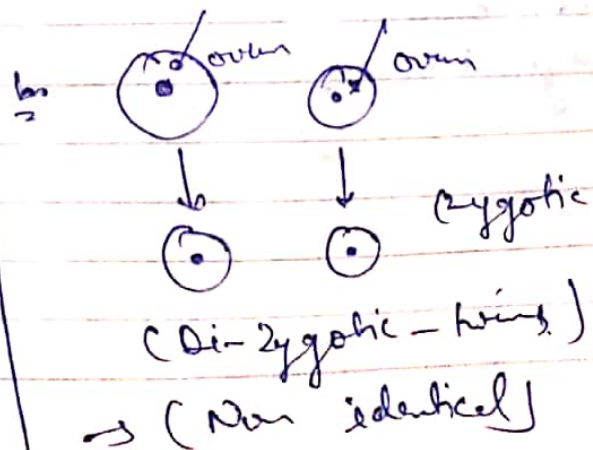 ovum
ovum
(zygotic
(Di-zygotic-twins)
→ (Non identical)